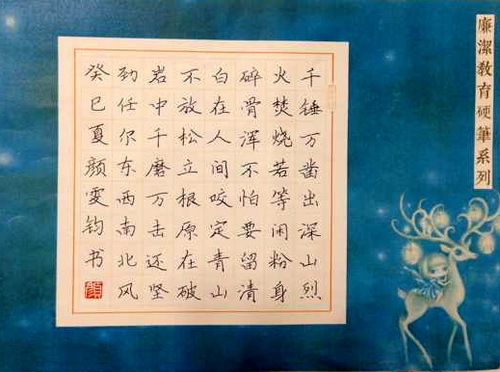 廉潔教育硬筆系列
千锤万凿出深山烈
火焚烧若等闲粉身
碎骨浑不怕要留清
白在人间咬定青山
不放松立根原在破
岩中千磨万击还坚
劲任尔东西南北风
癸巳夏颜雯钧书